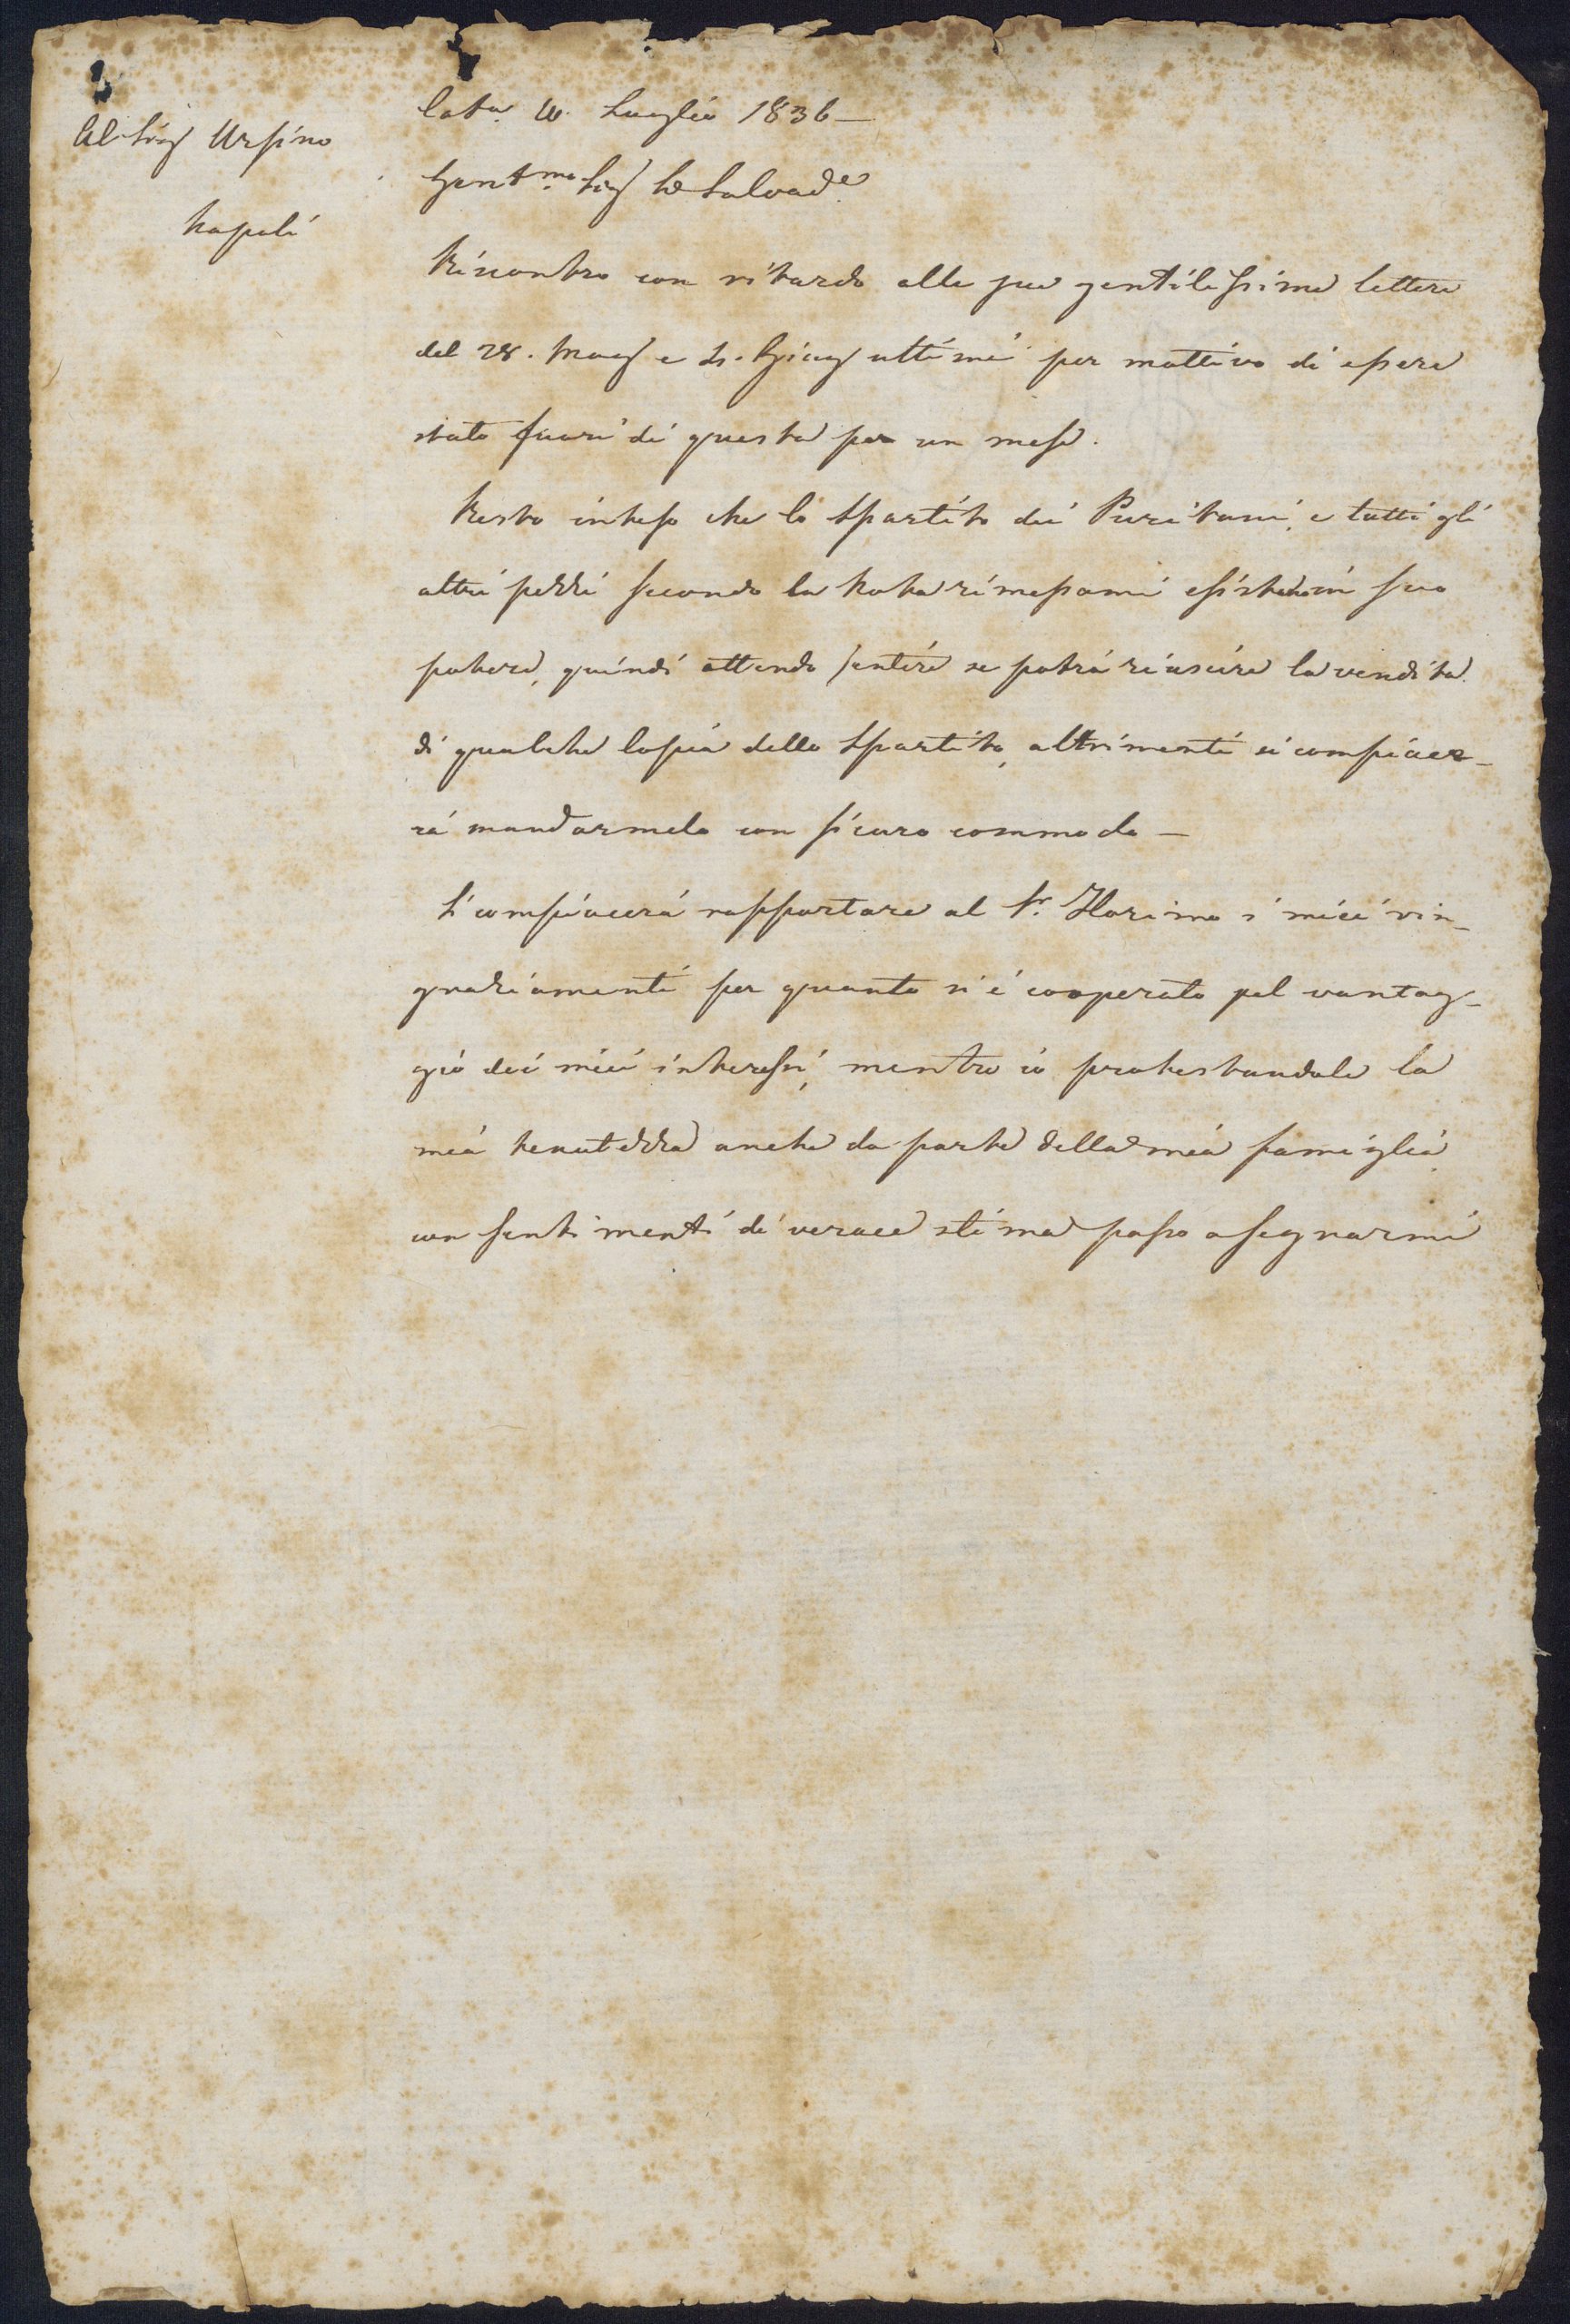 Al Sig Ursino
Napoli
Cata. Luglio 1836 —
Gentmo. Sig D Salvade.
Riscontro con ritardo alle sue gentilissime lettere
del 28. Mag e Giug ultimi per mottivo di essere
stato fuori di questa per un mese.
Resto inteso che lo Spartito dei Puritani, e tutti gli
altri pezzi secondo la Nota rimessami esistono in suo
potere, quindi attendo sentire se potrà riuscire la vendita
di qualche Copia dello Spartito, altrimenti si compiacer-
rà mandarmelo con sicuro commodo —
Si compiacerà rapportare al Sr. Florimo i miei rin-
graziamenti per quanto si è cooperato pel vantag-
gio dei miei interessi, mentre io protestandole la
mia tenutezza anche da parte della mia famiglia
con sentimenti di verace stima passo a segnarmi